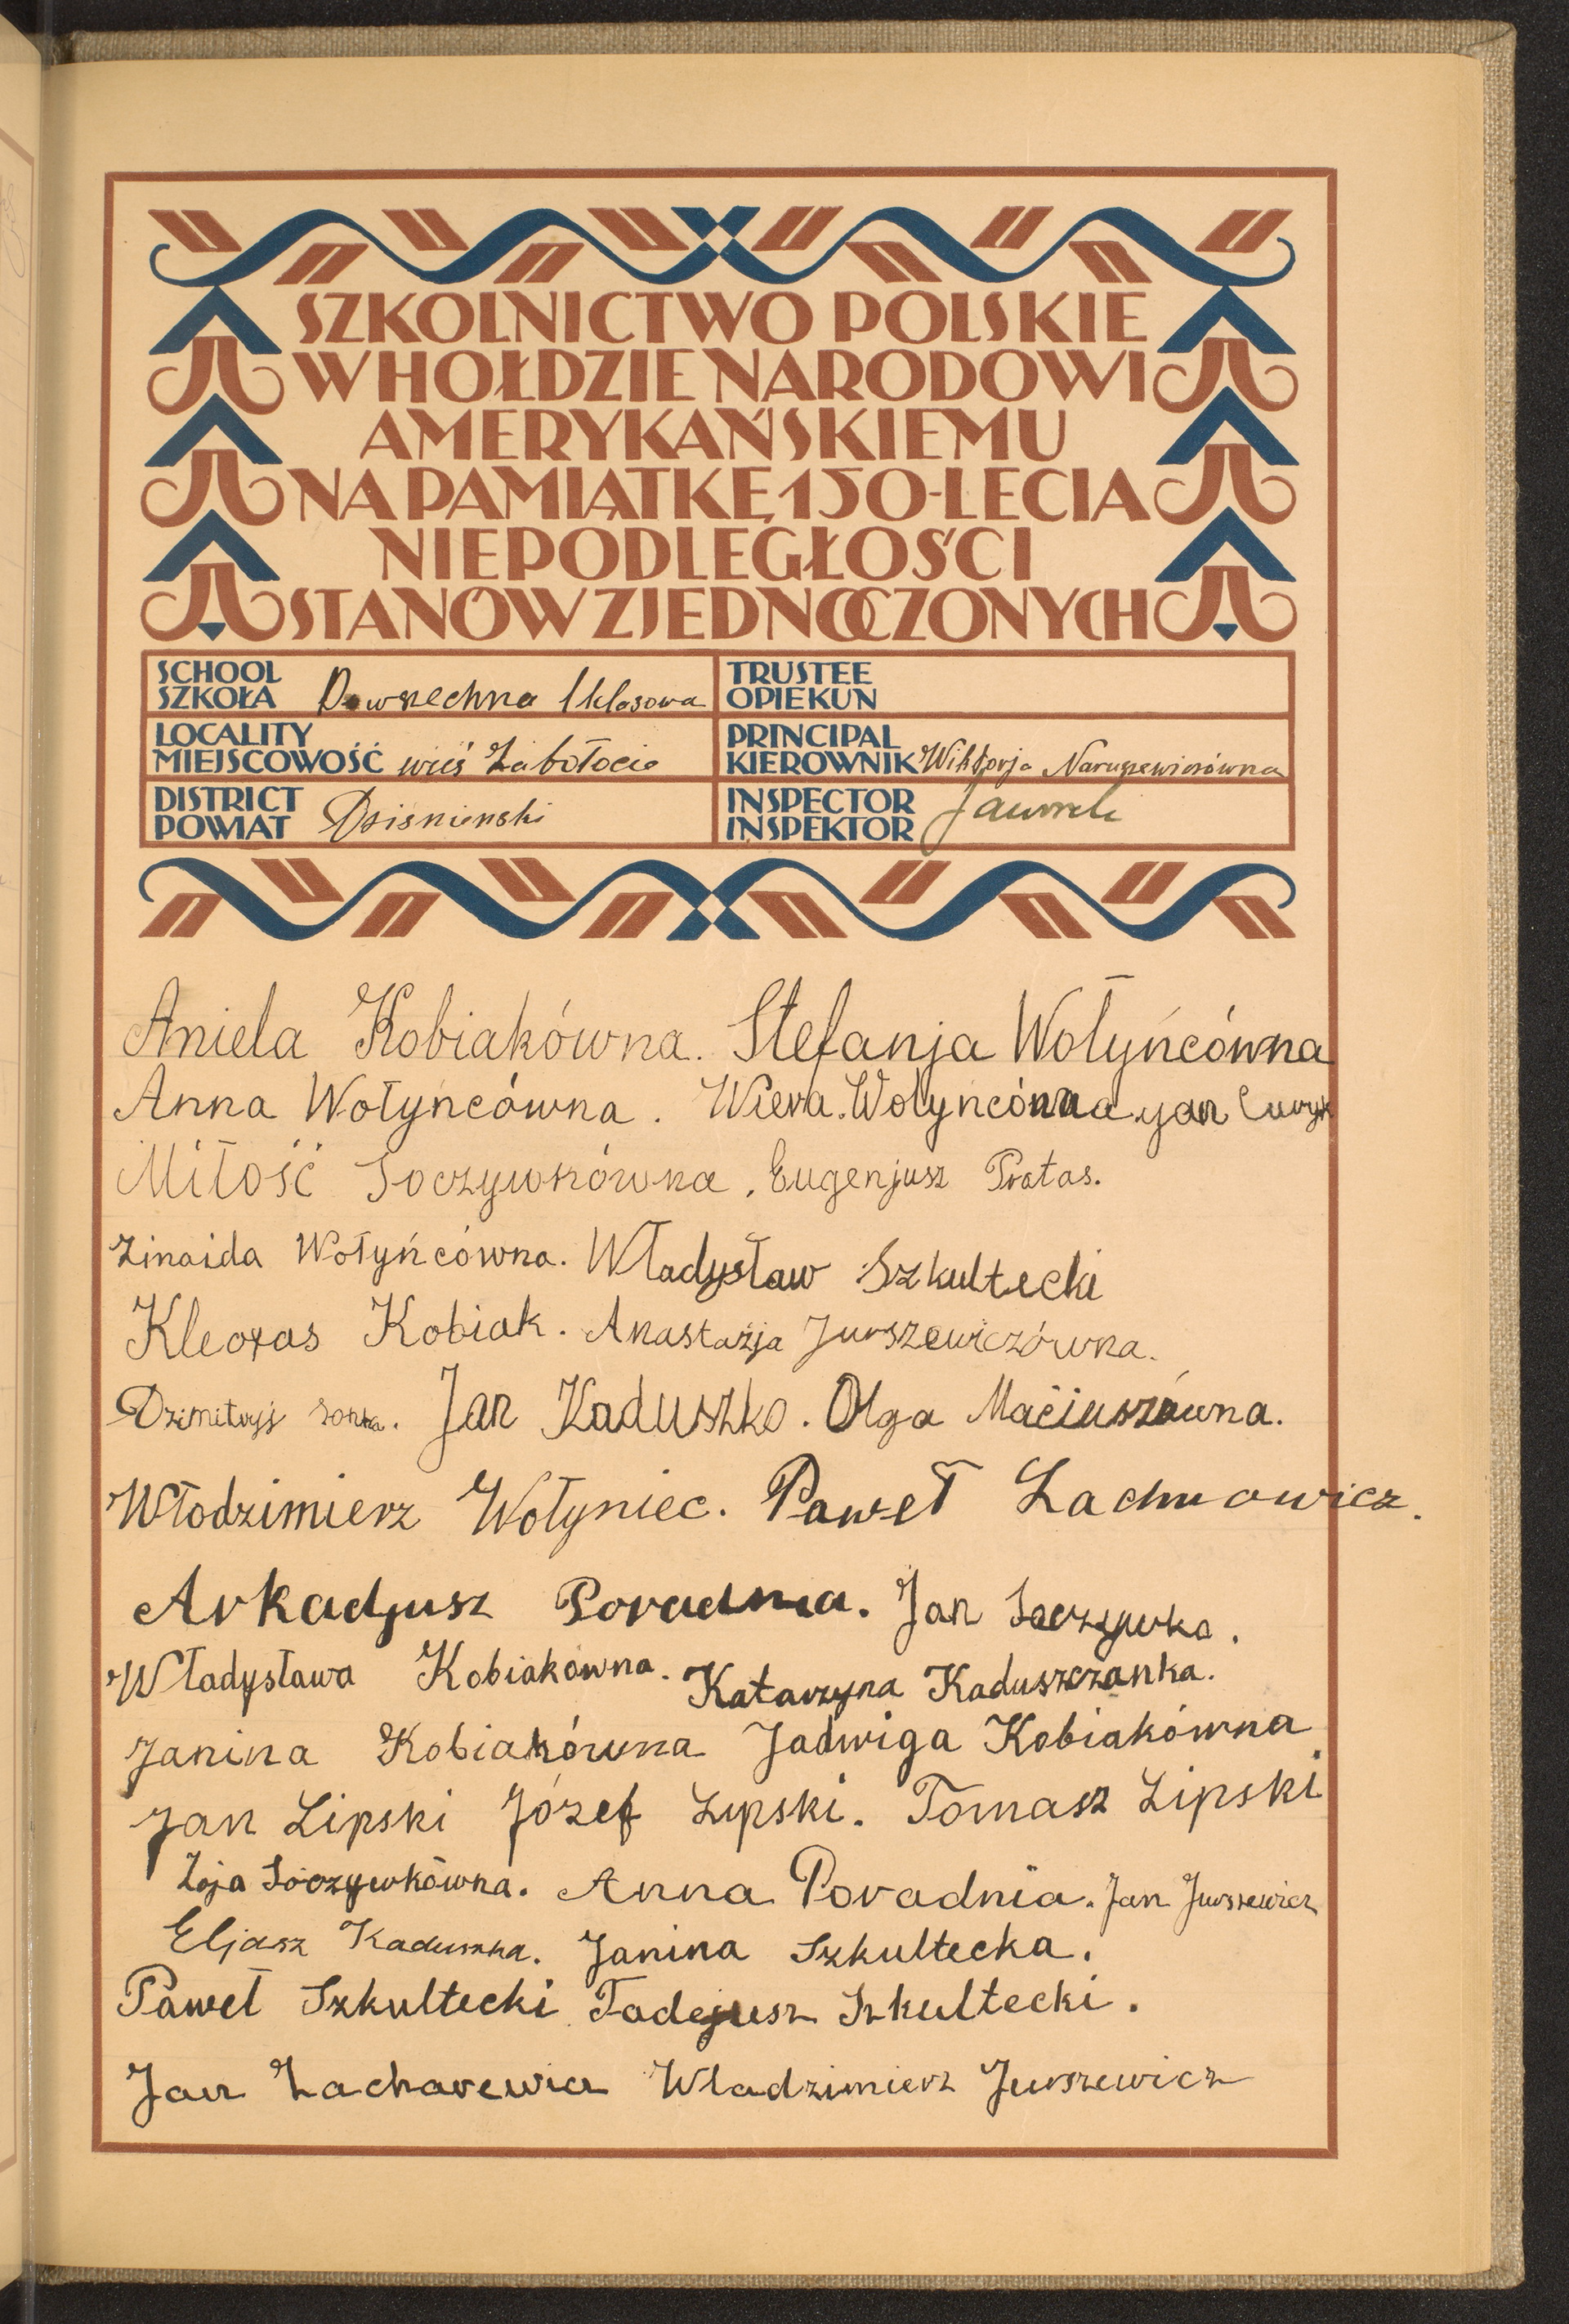 SZKOLNICTWO POLSKIE
W HOŁDZIE NARODOWI
AMERYKAŃSKIEMU
NA PAMIĄTKĘ 150-LECIA
NIEPODLEGŁOŚCI
STANÓW ZJEDNOCZONYCH
SCHOOL
SZKOŁA Powszechna 1 klasowa
TRUSTEE
OPIEKUN
LOCALITY
MIEJSCOWOŚĆ wieś Zabołocie
PRINCIPAL
KIEROWNIK Wiktorja Naruszewiczówna
DISTRICT
POWIAT Dziśnieński
INSPECTOR
INSPEKTOR
Aniela Kobiakówna. Stefanja Wołyńcówna
Anna Wołyńcówna. Wiera Wołyncówna Jan
Miłość Soczywkówna. Eugenjusz Pratas.
Zinaida Wołyńcówna. Władysław Szkultecki
Kleofas Kobiak. Anastazja Jurszewiczówna.
Dzimitryj Sonka. Jan Kaduszko. Olga Maciuszówna.
Włodzimierz Wołyniec. Paweł Lachnowicz.
Arkadjusz Poradnia. Jan Soczywka.
Władysława Kobiakówna. Katarzyna Kaduszczanka.
Janina Kobiakówna Jadwiga Kobiakówna
Jan Lipski Józef Lipski. Tomasz Lipski
Zoja Soczywkówna. Anna Poradnia. Jan Jurszewicz
Eljasz Kaduszka. Janina Szkultecka.
Paweł Szkultecki Tadejusz Szkultecki.
Jan Zacharewicz Wladzimierz Jurszewicz